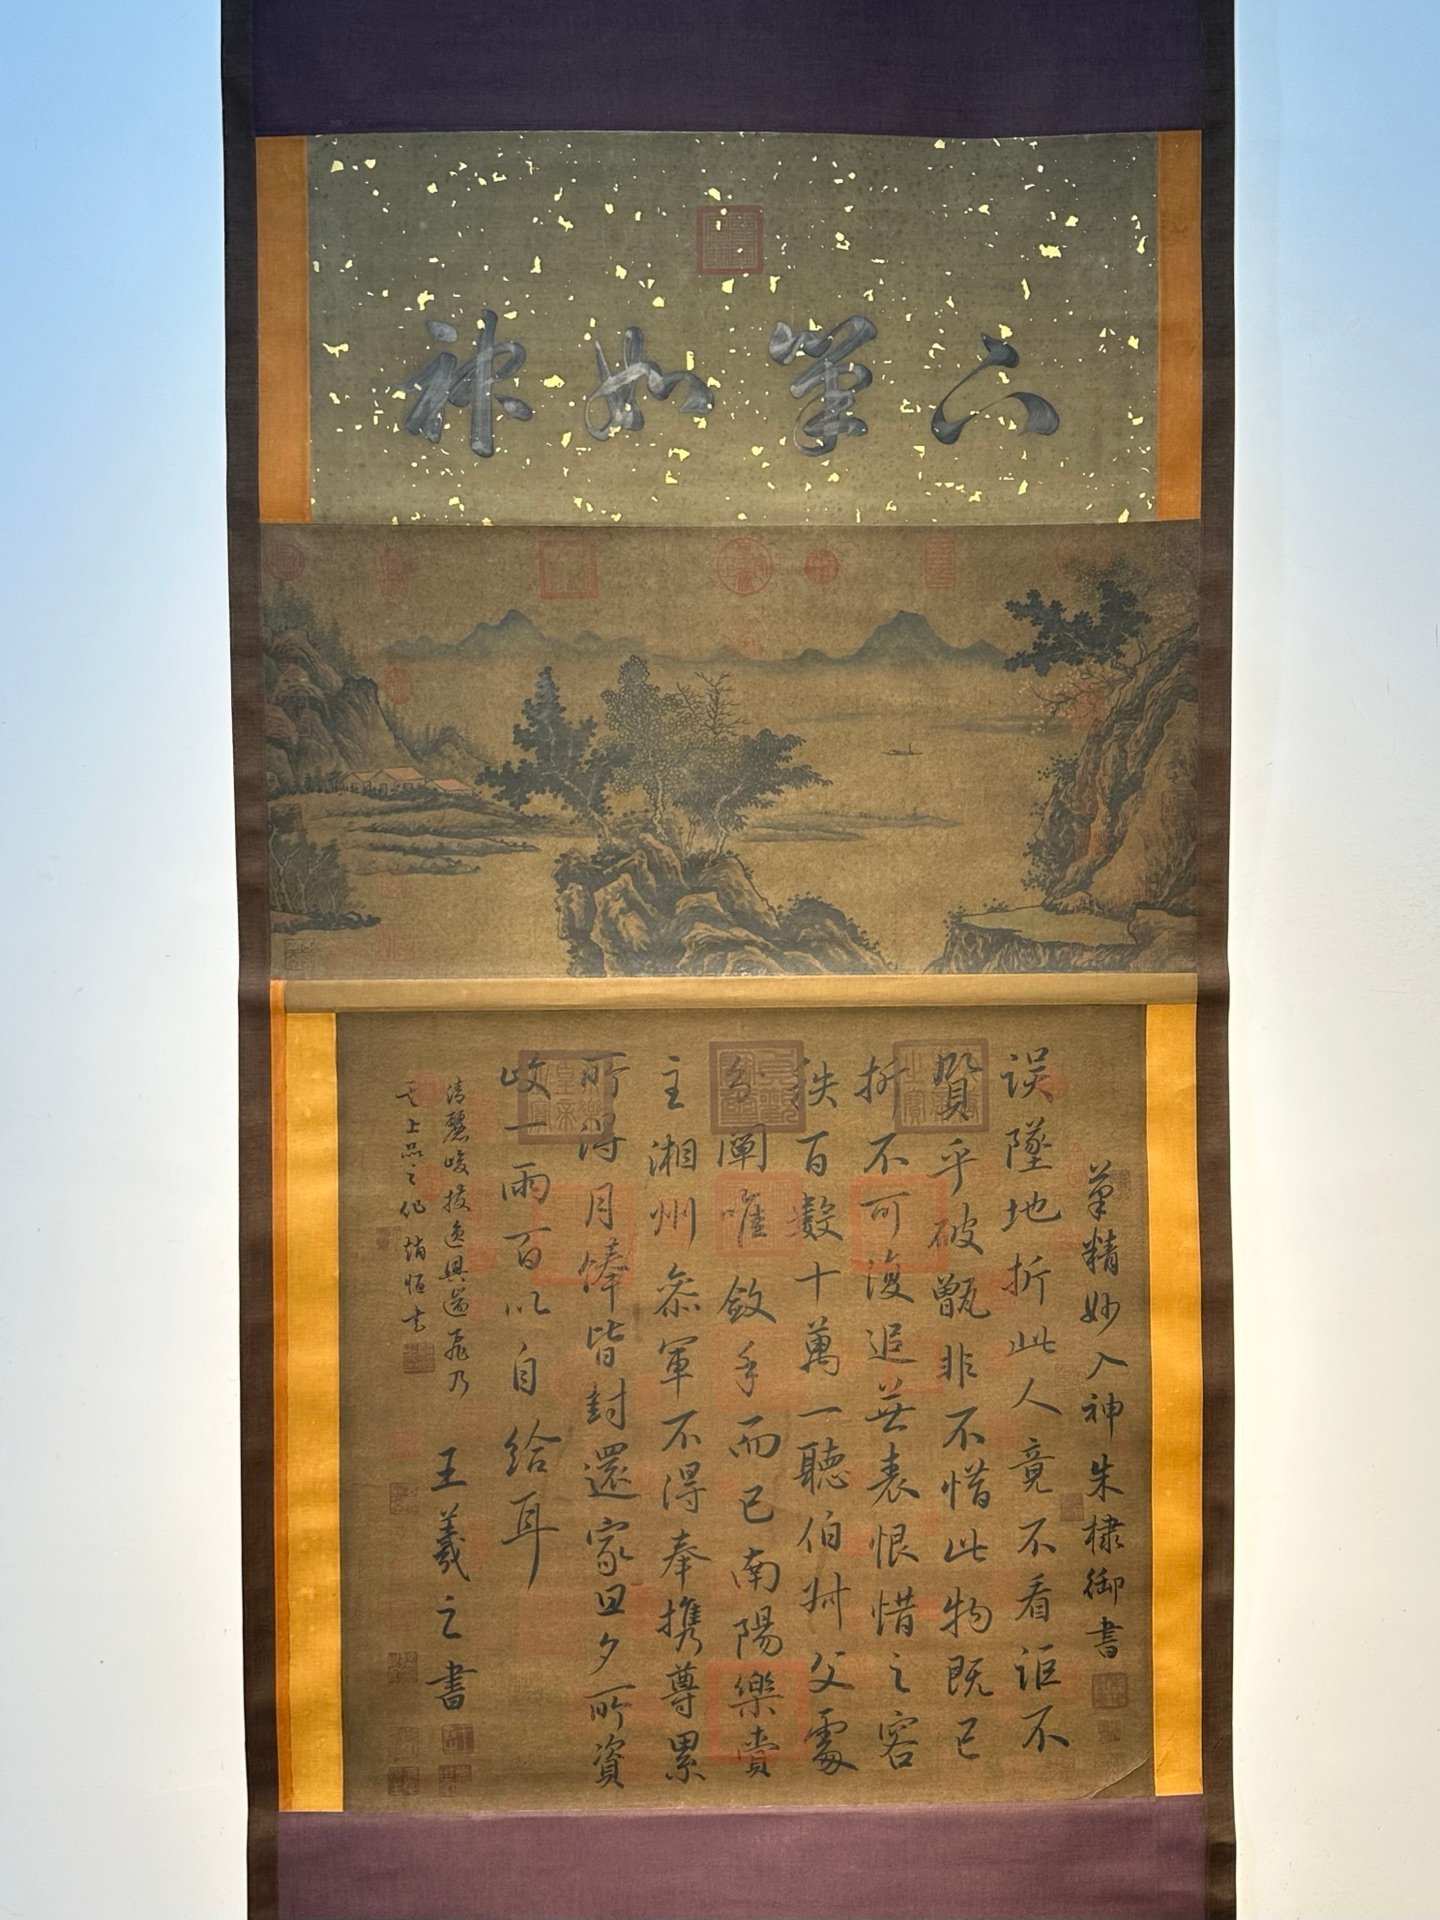 六筆如神
筆精妙入神朱棣御書
誤墜地折此人竟不看詎不
賢乎破甑非不惜此物既已
折不可復追無表恨惜之容
袟百數十萬一聽伯叔父處
分闡唯斂手而已南陽樂賣
主湘州叅軍不得奉携尊累
所得月俸皆封還家旦夕所資
收一兩百以自給耳
王羲之書
清麗峻拔逸興遄飛乃
天上品之作趙恒書